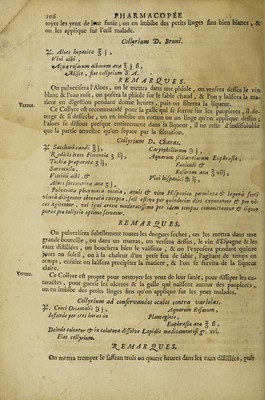 106 PHARMACOPÉE
toyer les yeux de leur sanie; on en imbibe des petits linges fins bien blancs, &
on les applique sur l'œil malade.
Collyrium D. Bruni.
♃. Aloes hepatica ʒ j,
Vini albi,
Aquæ rosarum albarum ana ℥ j ß,
Misce, fiat collyrium S. A.
REMARQUES.
On pulverisera l'Aloes, on le mettra dans une phiole, on versera dessus le vin
blanc & l'eau rose, on posera la phiole sur le sable chaud, & l'on y laissera la ma-
tiere en digestion pendant douze heures, puis on filtrera la liqueur.
Vertus.
Ce Collyre est recommandé pour la galle qui se forme sur les paupieres, il de-
terge & il desseche, on en imbibe un cotton ou un linge qu'on applique dessus;
l'aloes se dissout presque entierement dans la liqueur, il ne reste d'indissoluble
que la partie terrestre qu'on separe par la filtration.
Collyrium D. Charas.
♃. Sacchari candi
Radicis ireos Florentiæ
Tuthiæ præparatæ
Sarcocolæ,
Vitrioli albi, &
Aloes succotrinæ ana
Caryophillorum
Aquarum stillatitiarum Euphrasiæ,
Fœniculi &
Rosarum ana
Vini hispanici
REMARQUES.
On pulverisera subtilement toutes les drogues seches, on les mettra dans une
grande bouteille, ou dans un matras, on versera dessus, le vin d'Espagne & les
eaux distillées, on bouchera bien le vaisseau, & on l'exposera pendant quinze
jours au soleil, ou à la chaleur d'un petit feu de sable, l'agitant de temps en
temps, ensuite on laissera precipiter la matiere, & l'on se servira de la liqueur
claire.
Vertus.
Ce Collyre est propre pour nettoyer les yeux de leur sanie, pour dissiper les ca-
taractes, pour guerir les ulceres & la galle qui naissent autour des paupieres,
on en imbibe des petits linges fins qu'on applique sur les yeux malades.
Collyrium ad conservandos oculos contra variolas.
♃. Croci Orientalis
Infunde per tres horas in
Aquarum Rosarum,
Plantaginis,
Euphrasiæ ana
Deinde colentur & in colatura dissolve Lapidis medicamentosi gr. xvi.
Fiat collyrium.
REMARQUES.
On mettra tremper le saffran trois ou quatre heures dans les eaux distillées, puis